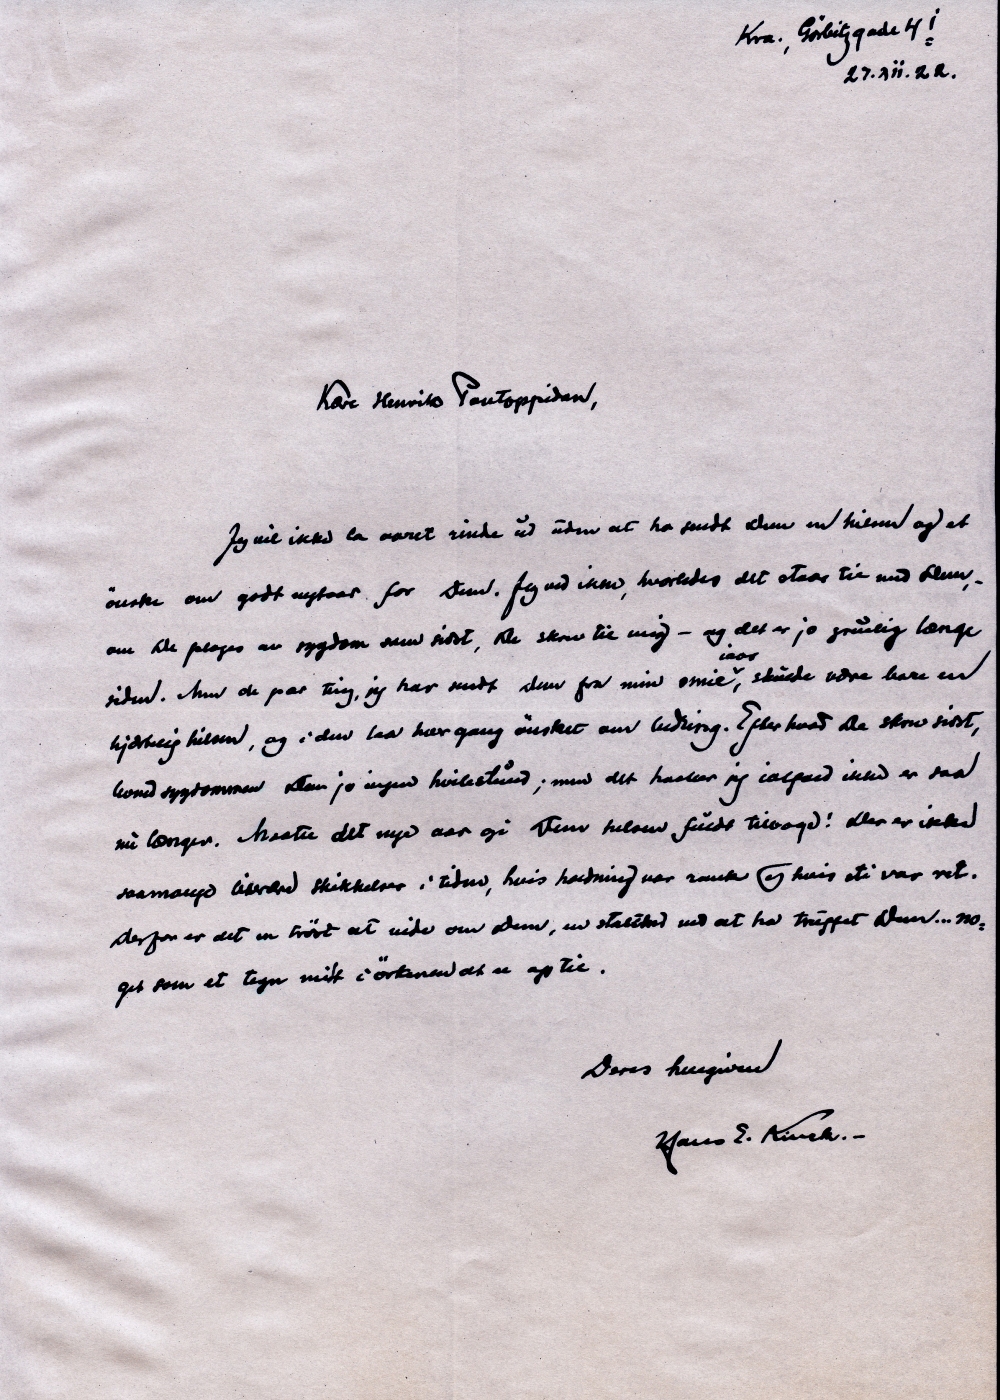 Kra., Görbitzgade 4 I
27.XII.22.
Kære Henrik Pontoppidan,
Jeg vil ikke la aaret rinde ud uden at ha sendt Dem en hilsen og et
ønske om godt nytaar for Dem. Jeg ved ikke, hvorledes det staar til med Dem, -
om De plages av sygdom som sidst, De skrev til mig – og det er jo grulig længe
siden. Men de par ting, jeg har sendt Dem fra min smie iaar, skulde være bare en
hjærtelig hilsen, og i dem laa hver gang ønsket om bedring. Efter hvad De skrev sidst,
levned sygdommen Dem jo ingen hvilestund; men det haaber jeg ialfald ikke er saa
nu længer. Maatte det nye aar gi Dem helsen fuldt tilbage! Der er ikke
saamange litterære skikkelser i tiden, hvis holdning var rank og hvis sti var ret.
Derfor er det en trøst at vide om Dem, en stolthed ved at ha truffet Dem... no=
get som et tegn midt i ørkenen at se op til.
Deres hengivne
Hans E. Kinck. –